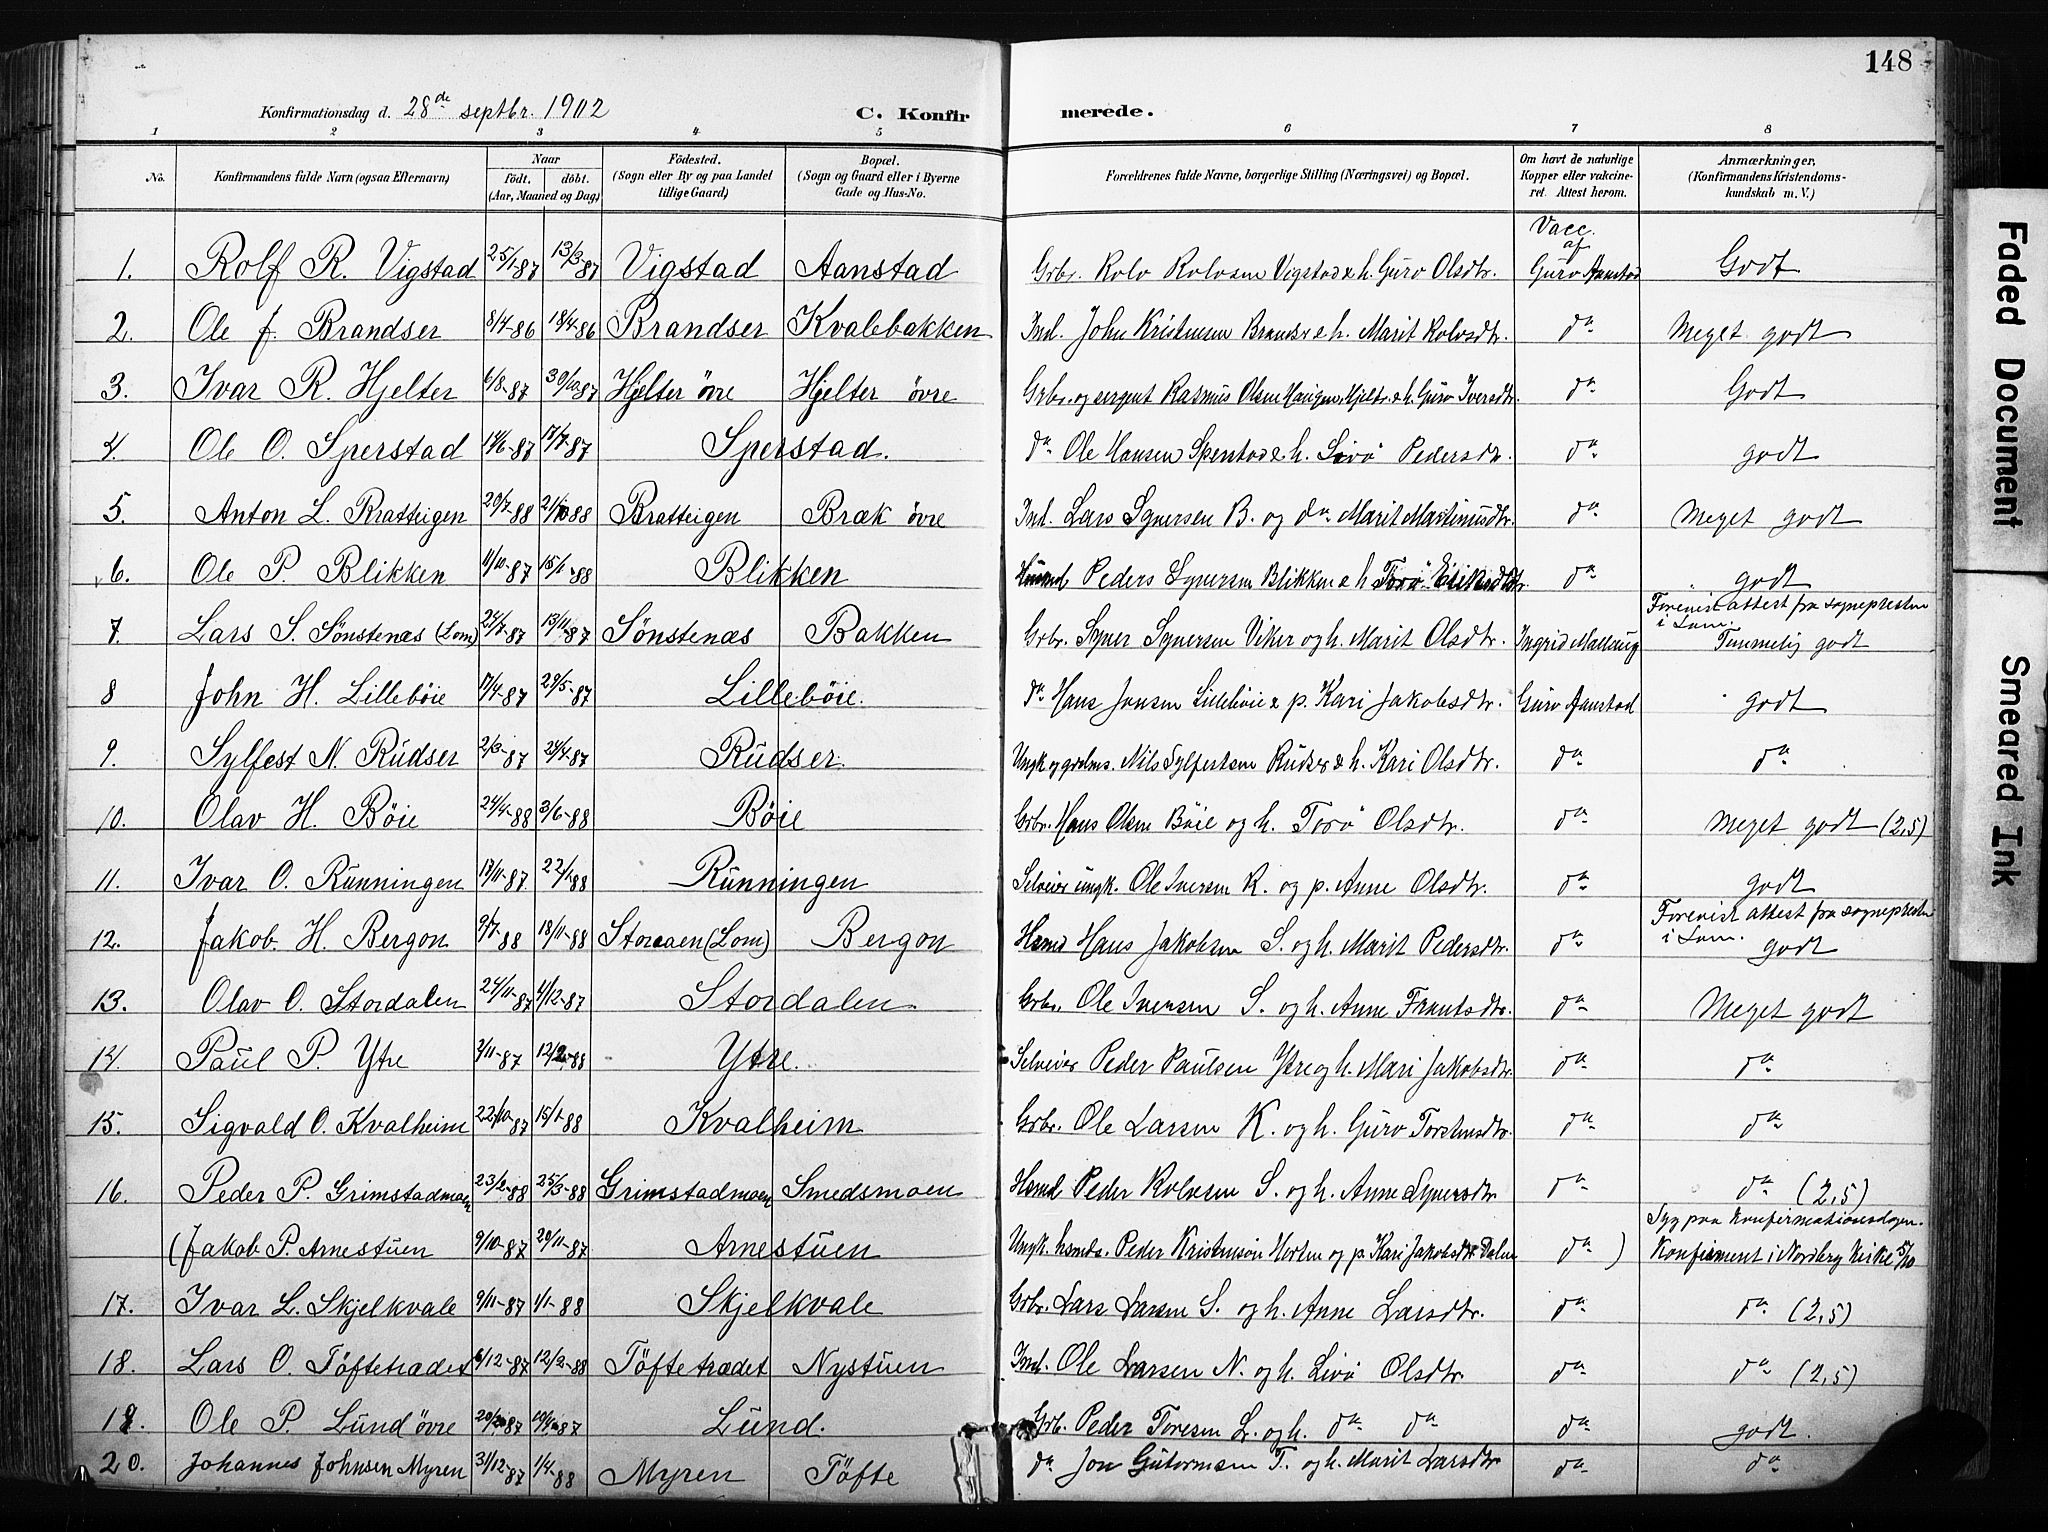 148
Konfirmationsdag d. 28de septbr. 1902 C. Konfirmerede.
1 2 3 4 5 6 7 8
No. Konfirmandens fulde Navn (ogsaa Efternavn) Naar født. døbt. (Aar, Maaned og Dag) Fødested. (Sogn eller By og paa Landet tillige Gaard) Bopæl. (Sogn og Gaard eller i Byerne Gade og Hus-No. Forældrenes fulde Navne, borgerlige Stilling (Næringsvei) og Bopæl. Om havt de naturlige Kopper eller vakcineret. Attest herom. Anmærkninger, (Konfirmandens Kristendomskundskab m. V.)
1. Rolf R. Vigstad 25/1-87 13/3-87 Vigstad Aanstad Grbr. Rolv Rolvsen Vigstad & h. Guro Olsdtr. Vacc. af Guro Aanstad Godt
2. Ole J. Brandser 8/4-86 18/4-86 Brandser Kvalebakken Ind. John Kristensen Brandser & h. Marit Rolvsdtr. do Meget godt
3. Ivar R. Hjelter 6/8-87 30/10-87 Hjelter övre Hjelter övre Grbr. og sergent Rasmus Olsen Haugen, Hjeltr. & h. Guro Iversdtr. do Godt
4. Ole O. Sperstad 14/6-87 17/7-87 Sperstad. do Ole Hansen Sperstad & h. Livö Pedersdtr. do godt
5. Anton L. Bratteigen 20/7-88 21/10-88 Bratteigen Bræk övre Ind. Lars Synersen B. og do Marit Martinusdtr. do Meget godt
6. Ole P. Blikken 11/10-87 15/1-88 Blikken Peder Synersen Blikken & h. Torö Eriksdtr. do godt
7. Lars S. Sönstenæs (Lom) 24/7-87 13/11-87 Sönstenæs Bakken Grbr. Syner Synersen Viker og h. Marit Olsdtr. Ingrid Forevist attest fra sognepresten i Lom. Temmelig godt
8 John H. Lilleböie 17/4-87 29/5-87 Lilleböie. do Hans Jonsen Lilleböie & p. Kari Jakobsdtr. Guro Aanstad godt
9. Sylfest N. Rudser 2/3-87 24/4-87 Rudser Ungk. og grdms. Nils Sylfestsen Rudser & h. Kari Olsdtr. do do
10. Olav H. Böie 24/4-88 3/6-88 Böie Grbr. Hans Olsen Böie og h. Torö Olsdtr. do Meget godt (2,5)
11. Ivar O. Runningen 17/11-87 22/1-88 Runningen Selveier ungk. Ole Iversen R. og p. Anne Olsdtr. do godt
12. Jakob H. Bergon 9/7-88 18/11-88 Storaaen (Lom) Bergon Hsmd Hans Jakobsen S. og h. Marit Pedersdtr. do Forevist attest fra sognepresten i Lom. godt
13. Olav O. Stordalen 24/11-87 4/12-87 Stordalen Grbr. Ole Iversen S. og h. Anne Frantsdtr. do Meget godt
14. Paul P. Ytre 2/11-87 12/2-88 Ytre. Selveier Peder Paulsen Ytre og h. Mari Jakobsdtr. do do
15. Sigvald O. Kvalheim 22/10-87 15/1-88 Kvalheim Grbr. Ole Larsen K. og h. Guro Torstensdtr. do do
16. Peder P. Grimstadmoen 23/2-88 25/3-88 Grimstadmoen Smedsmoen Hsmd Peder Rolvsen S. og h. Anne Synersdtr do do (2,5)
(Jakob P. Arnestuen 9/10-87 20/11-87 Arnestuen Ungk. hsmds. Peder Kristensön Horten og p. Kari Jakobsdtr. Dalen do ) Syg paa konfirmationsdagen. Konfirment i Nordberg kirke 5/10
17. Ivar L. Skjelkvale 9/11-87 1/1-88 Skjelkvale Grbr. Lars Larsen S. og h. Anne Larsdtr. do do (2,5)
18. Lars O. Töftetrædet 6/12-87 12/2-88 Töftetrædet Nystuen Ind. Ole Larsen N. og h. Livö Olsdtr. do do (2,5)
19. Ole P. Lund övre 20/2-87 10/4-87 Lund. Grb. Peder Toresen L. og h. do do do godt.
20. Johannes Johnsen Myren 31/12-87 1/4-88 Myren Töfte do Jon Gutormsen T. og h. Marit Larsdtr do do
Faded Document
Smeared Ink